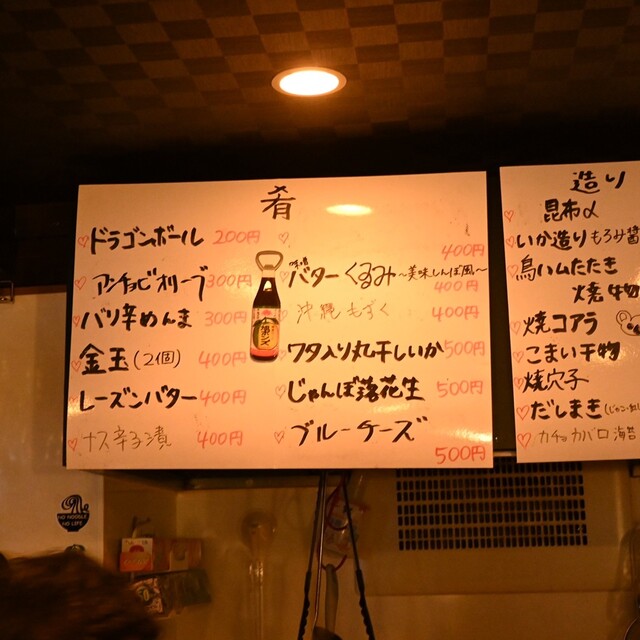 肴
ドラゴンボール 200円
アンチョビオリーブ 300円
バリ辛めんま 300円
金玉(2個) 400円
レーズンバター 400円
ナス辛子漬 400円
400円
味噌バターくるみ〜美味しんぼ風〜 400円
沖縄もずく 400円
ワタ入り丸干しいか 500円
じゃんぼ落花生 500円
ブルーチーズ 500円
造り
昆布〆
いか造りもろみ醤
鳥ハムたたき
焼物
焼コアラ
こまい干物
焼穴子
だしまき
カチョカバロ海苔
NO NOODLE
NO LIFE